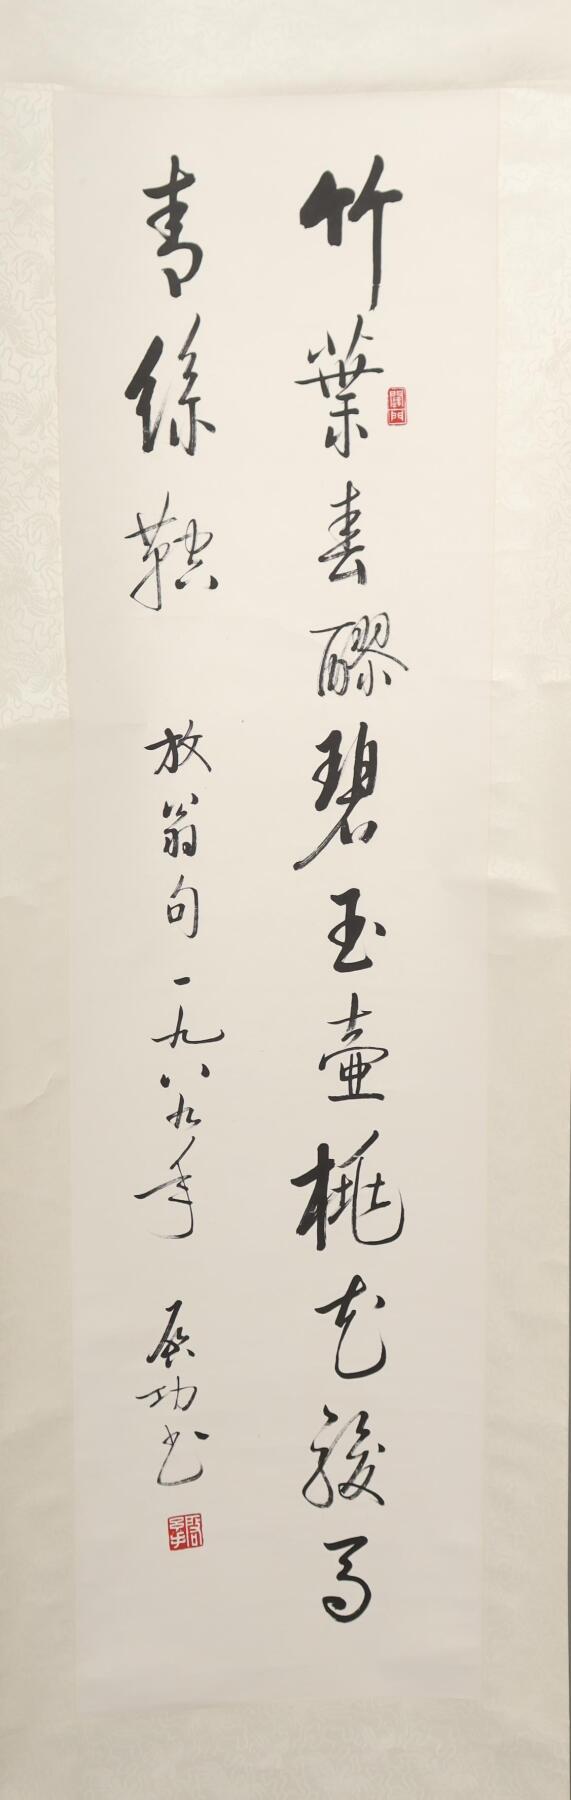 竹葉春醪碧玉壺桃花駿馬
青絲鞚 放翁句一九八九年 啟功書